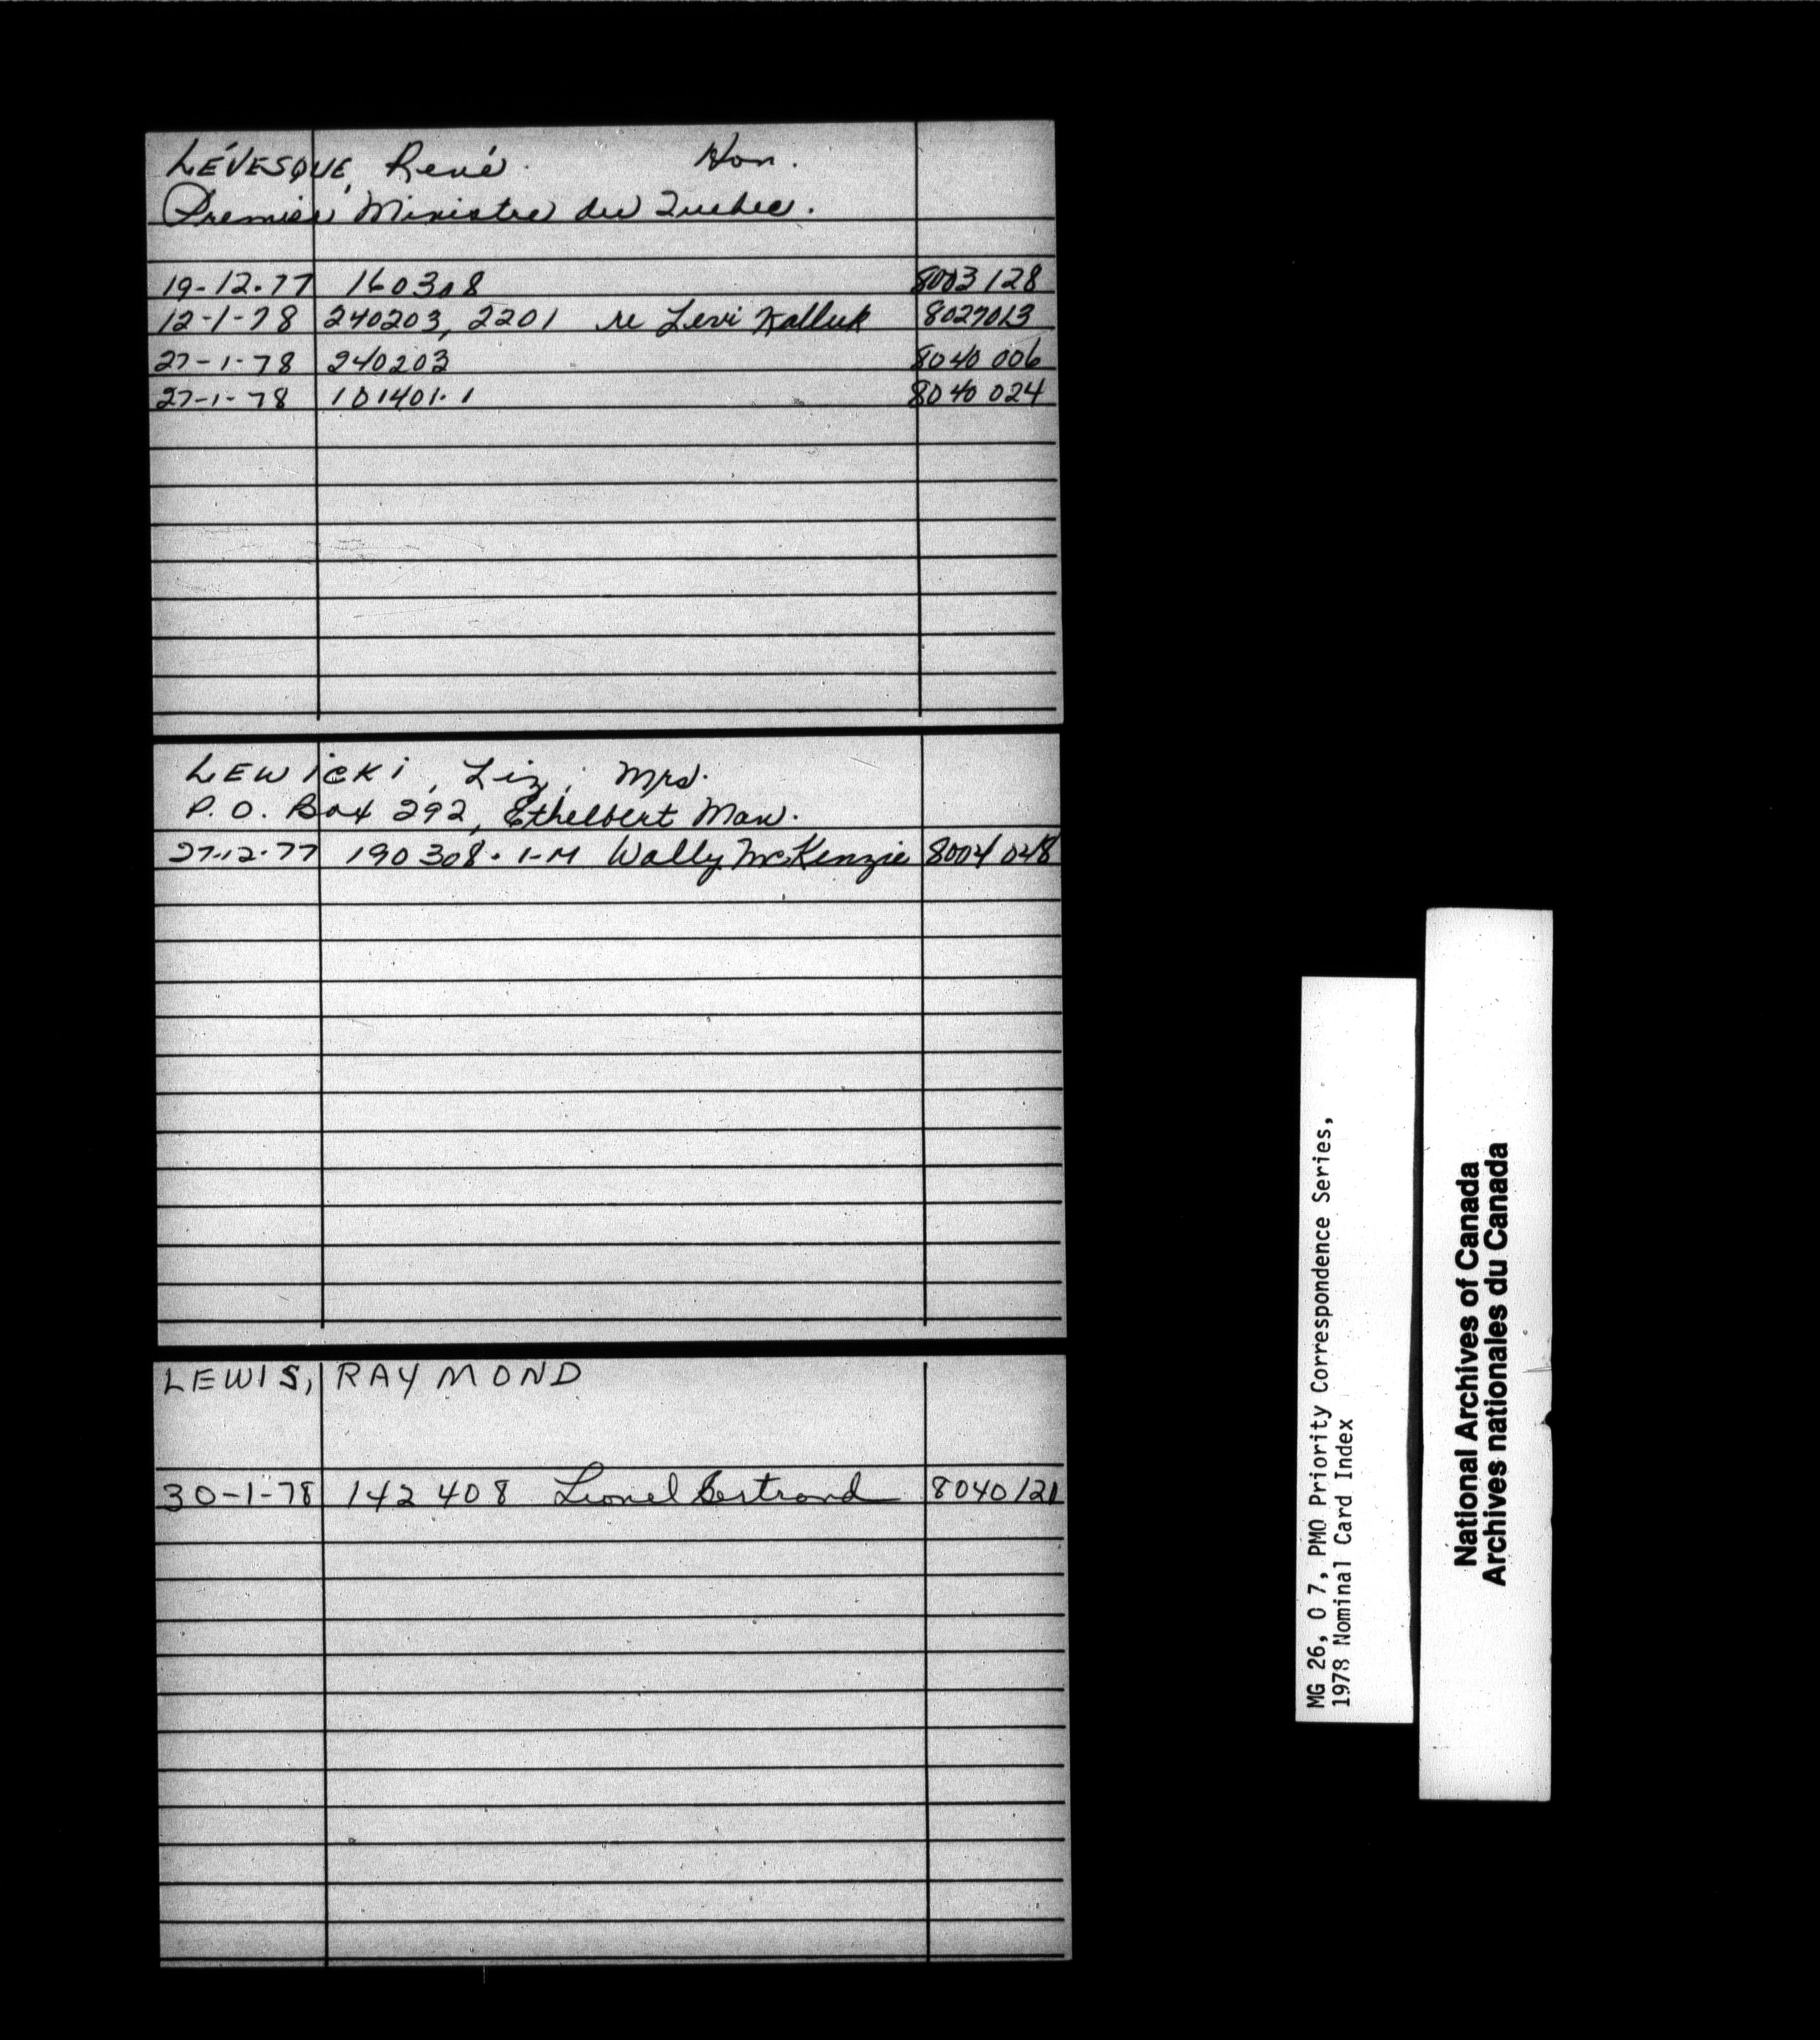 LÉVESQUE, René. Hon.
Premier Ministre du Quebec.
19-12-77 160308 8003128
12-1-78 240203, 2201 re Levi Kalluk 8027013
27-1-78 240203 8040 006
27-1-78 101401.1 8040 024
LEWICKI, Liz, Mrs.
P.O. Box 292, Ethelbert Man.
27-12-77 190308.1-M Wally McKenzie 8004 048
LEWIS, RAYMOND
30-1-78 142408 Lionel Bertrand 8040121
MG 26, O 7, PMO Priority Correspondence Series,
1978 Nominal Card Index
National Archives of Canada
Archives nationales du Canada